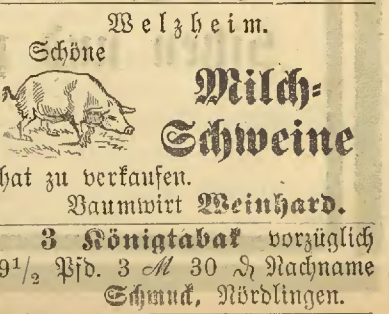 Welzheim.
Schöne
Milch-
Schweine
hat zu verkaufen.
Baumwirt Weinhard.
3 Königtabak vorzüglich
9½ Pfd. 3 ℳ 30 ₰ Nachname
Schmuck, Nördlingen.